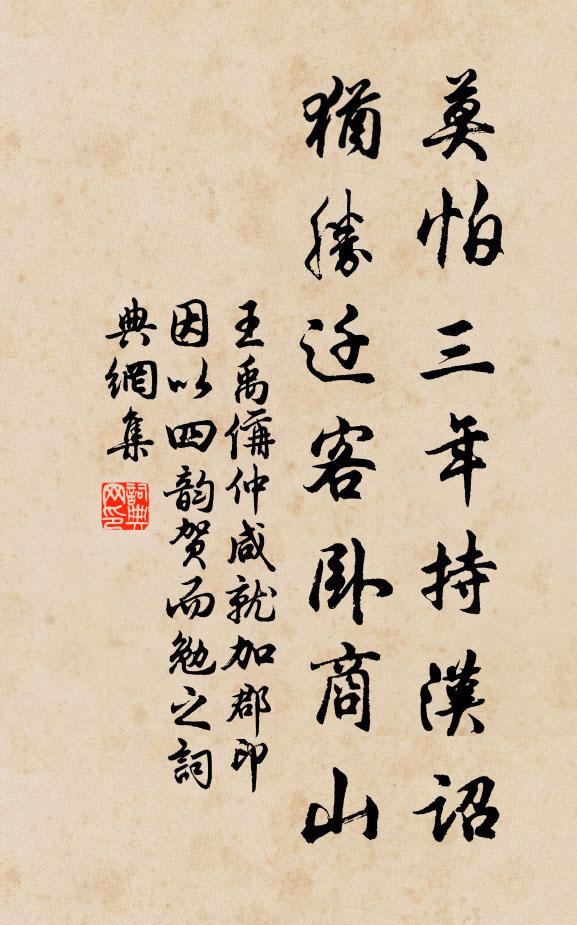 莫怕三年持漢詔
猶勝迁客卧商山
王禹偁仲咸就加郡印
因以四韵賀而勉之詞
典網集
詞典
网印